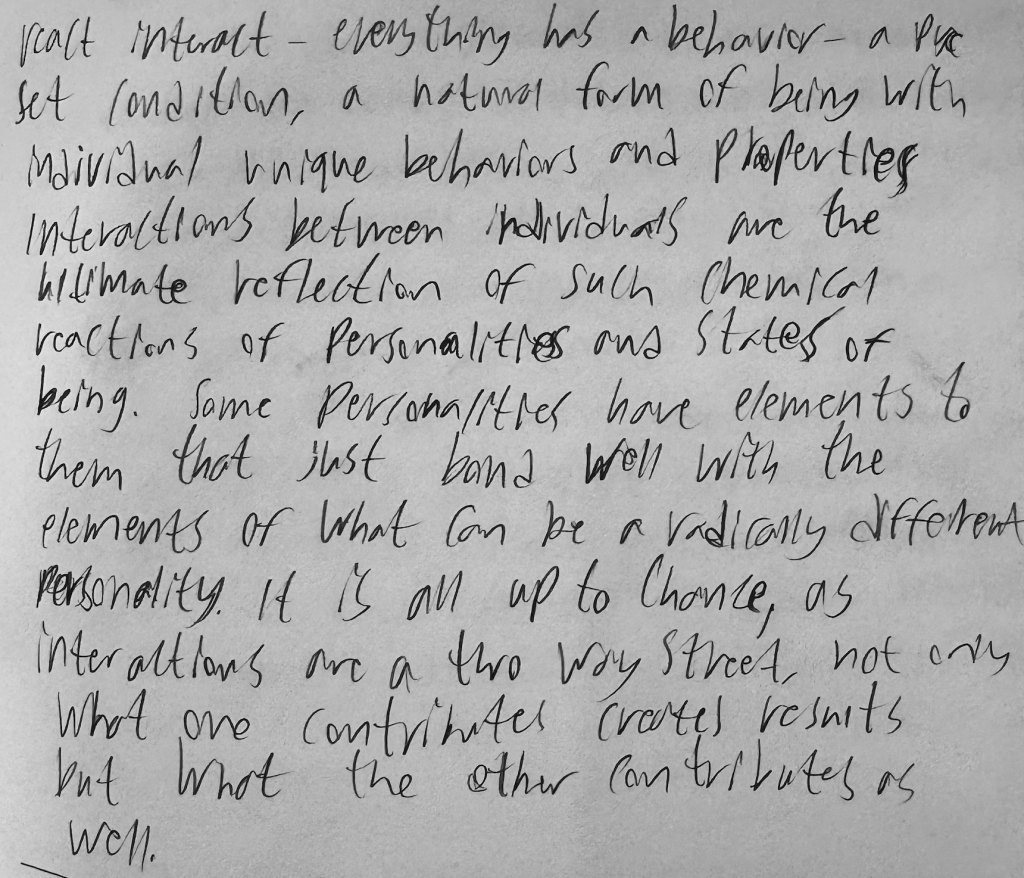 react interact - everything has a behavior - a pre
set condition, a natural form of being with
individual unique behaviors and properties
interactions between individuals are the
ultimate reflection of such chemical
reactions of personalities and states of
being. Some personalities have elements to
them that just bond well with the
elements of what can be a radically different
personality. It is all up to chance, as
interactions are a two way street, not only
what one contributes creates results
but what the other contributes as
well.